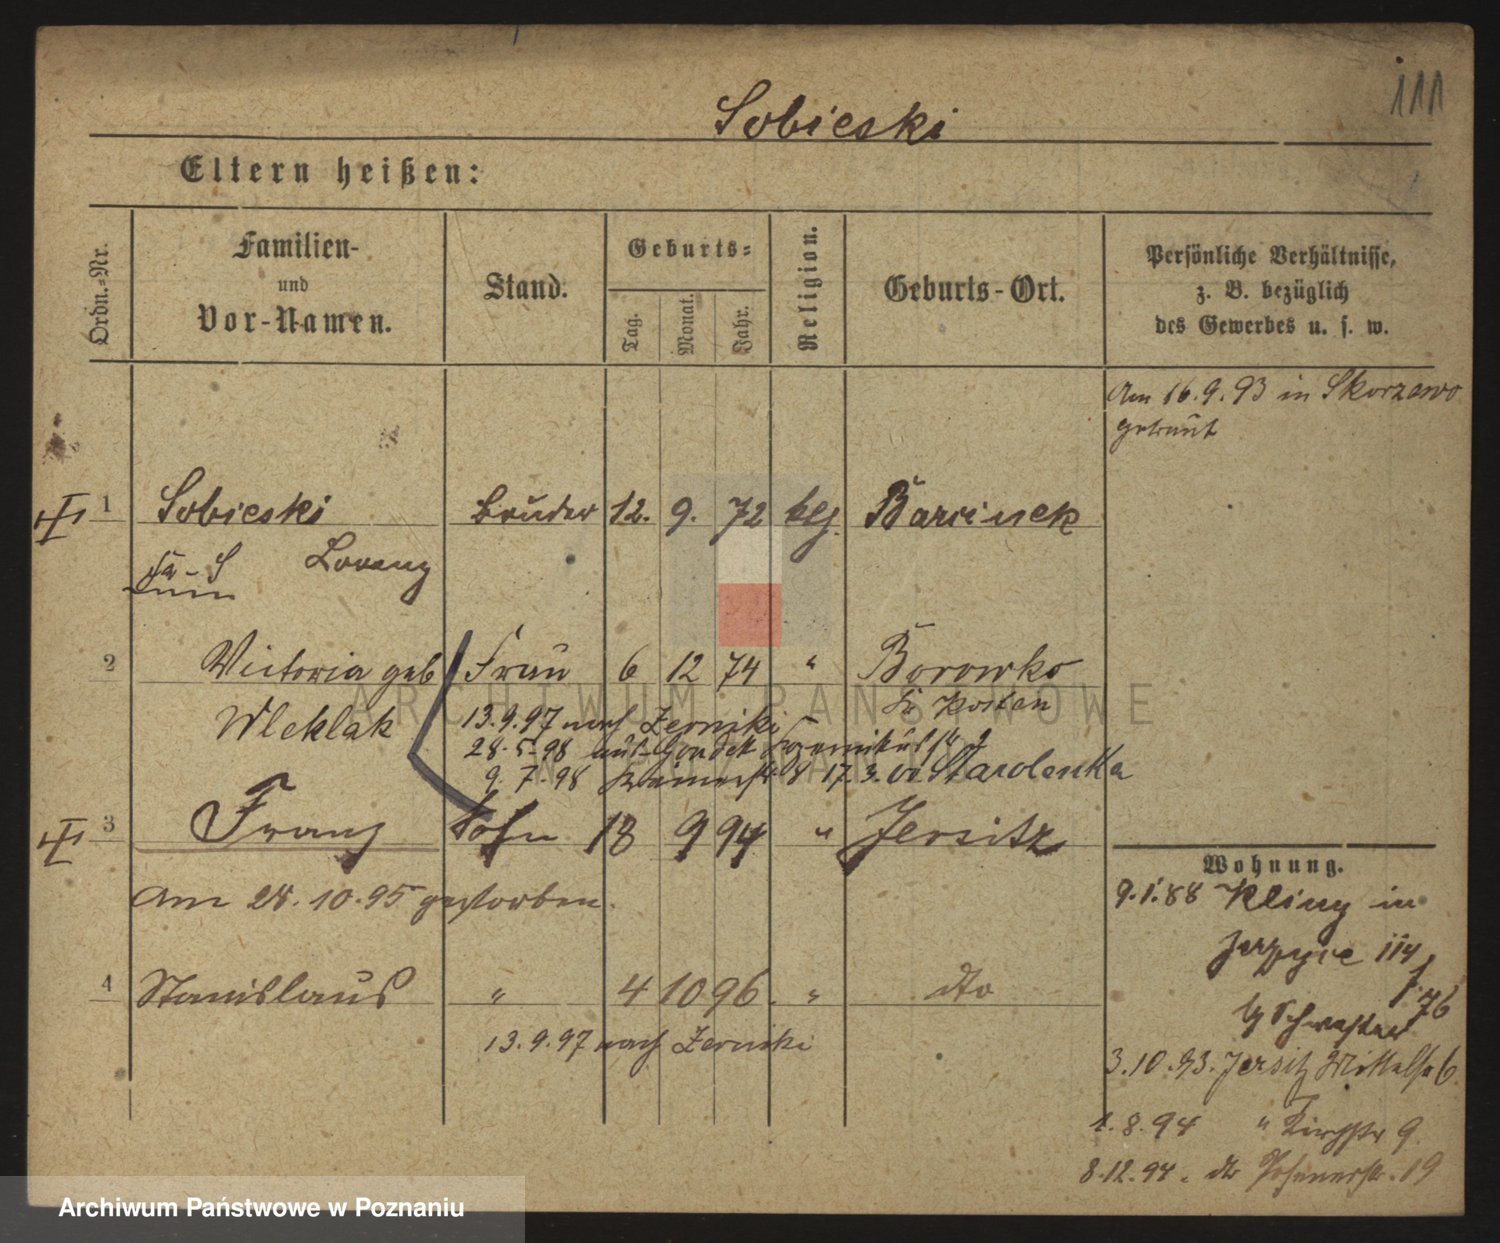 111
Sobieski
Eltern heißen:
Ordn.-Nr.
Familien-
und
Vor-Namen.
Stand.
Geburts-
Tag.
Monat.
Jahr.
Religion.
Geburts-Ort.
Persönliche Verhältnisse,
z. B. bezüglich
des Gewerbes u. s. w.
Am 16.9.93 in Skorzewo
getraut
1 Sobieski Bruder 12. 9. 72 klg. Barcinek
Lorenz
2 Victoria geb Frau 6 12 74 " Borowko
Wleklak
Kr Kosten
13.9.97 nach Zerniki
28.5.98 aus Gondek
9.7.98 17.3. Starolenka
3 Franz Sohn 18 9 94 " Jersitz
Am 28.10.95 gestorben.
4 Stanislaus " 4 10 96. " dto
13.9.97 nach Zerniki
Wohnung.
9.1.88 Kliny in
114
76
b/ Schwester
3.10.93. Jersitz Mittelstr 6
1.8.94 " Kirchstr 9
8.12.94. dto Posenerstr. 19
ARCHIWUM PAŃSTWOWE
W POZNANIU
Archiwum Państwowe w Poznaniu